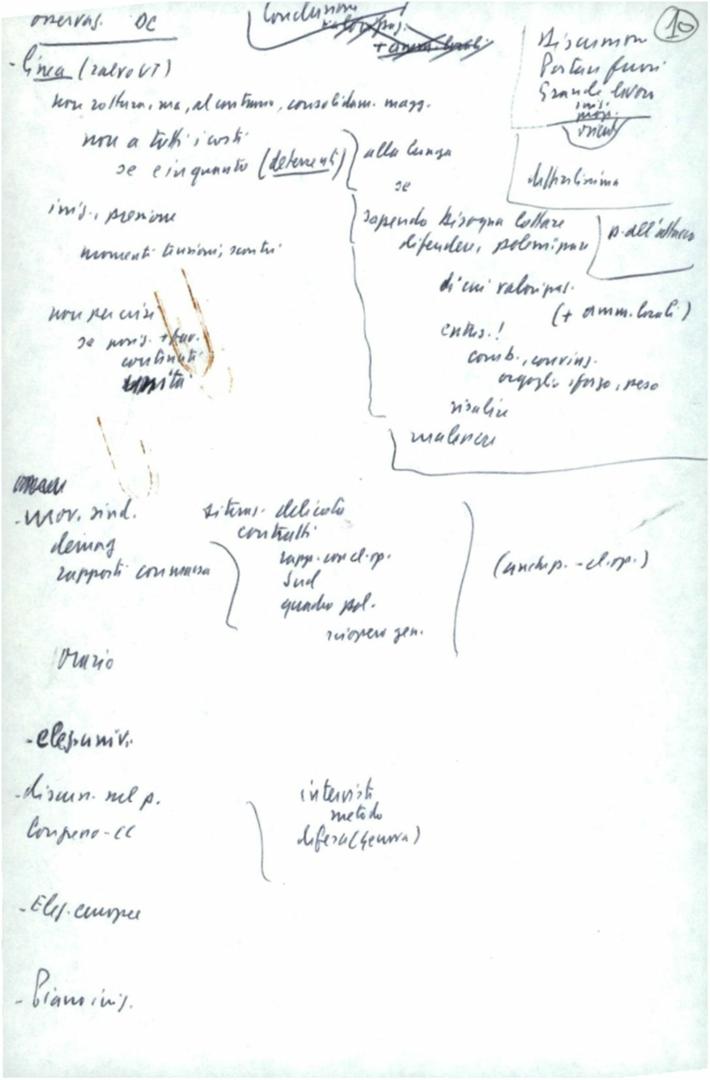 osservaz. DC
Conclusioni
valorizzaz.
+ amm. locali
10
Discussioni
Portare fuori
Grande lavoro
iniz.
- linea (salvo VI)
non rottura, ma, al contrario, consolidam. magg.
non a tutti i costi
se e in quanto (deterrenti)
alla lunga
se
difficilissima
iniz., pressione
momenti tensioni, scontri
sapendo bisogna lottare
difendere, polemizzare
p. all'attacco
di cui valorizzaz.
(+ amm. locali)
non per crisi
se poss. + fav.
continuità
unità
entus.!
comb., convinz.
orgoglio, forza, peso
risalire
malessere
- mov. sind.
demag
rapporti con massa
sistemaz. delicato
contratti
rapp. con cl. op.
Sud
quadro pol.
sciopero gen.
(anche p. - cl. op.)
Orario
- elez. univ.
- discuss. nel p.
Congresso - CC
interviste
metodo
difesa (Genova)
- Elez. europee
- Piano iniz.